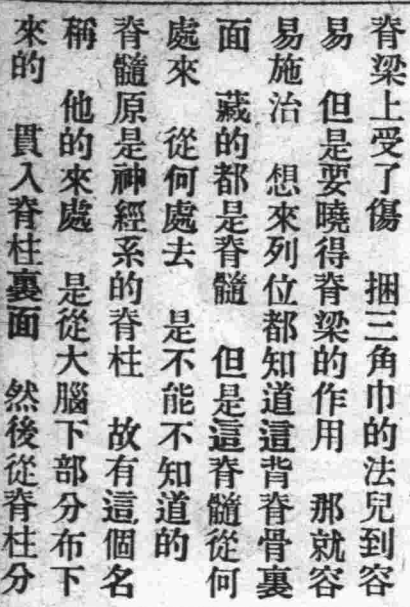 脊梁上受了傷　捆三角巾的法兒到容
易　但是要曉得脊梁的作用　那就容
易施治　想來列位都知道這背脊骨裏
面　藏的都是脊髓　但是這脊髓從何
處來　從何處去　是不能不知道的
脊髓原是神經系的脊柱　故有這個名
稱　他的來處　是從大腦下部分布下
來的　貫入脊柱裏面　然後從脊柱分